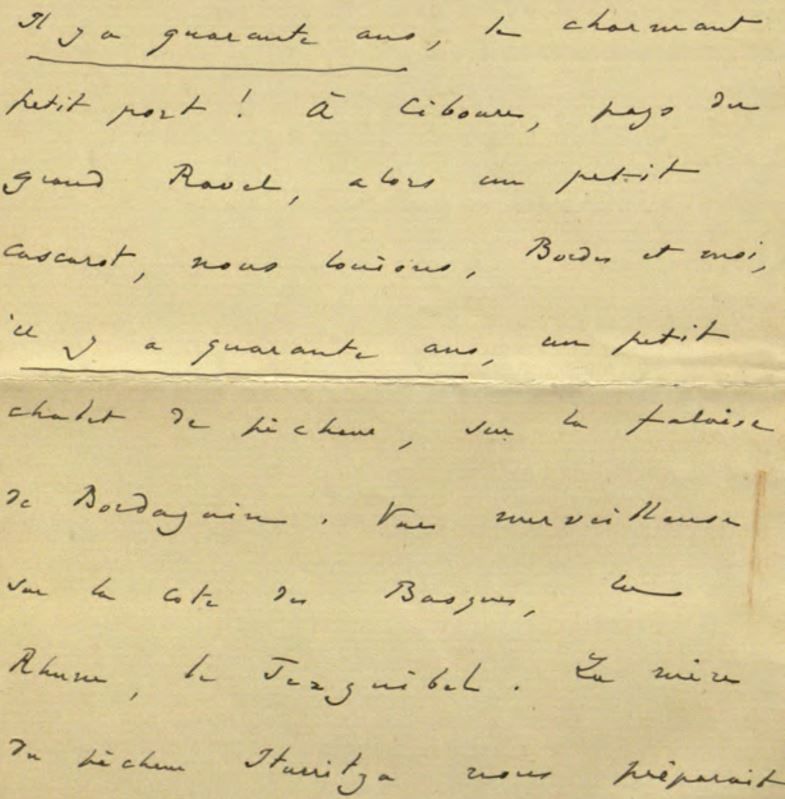 Il y a quarante ans, le charmant
petit port ! À Ciboure, pays du
grand Ravel, alors un petit
cascarot, nous louions, Bordes et moi,
il y a quarante ans, un petit
chalet de pêcheur, sur la falaise
de Bordagain. Vue merveilleuse
sur la côte des Basques, la
Rhune, le Jezguibel. La mère
du pêcheur Iturritza nous préparait